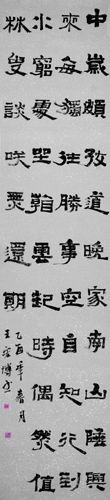 中歲頗好道晚家南山陲興
來每獨往勝事空自知行到
水窮處坐看雲起時偶然值
林叟談咲無還期
乙酉年春月
王